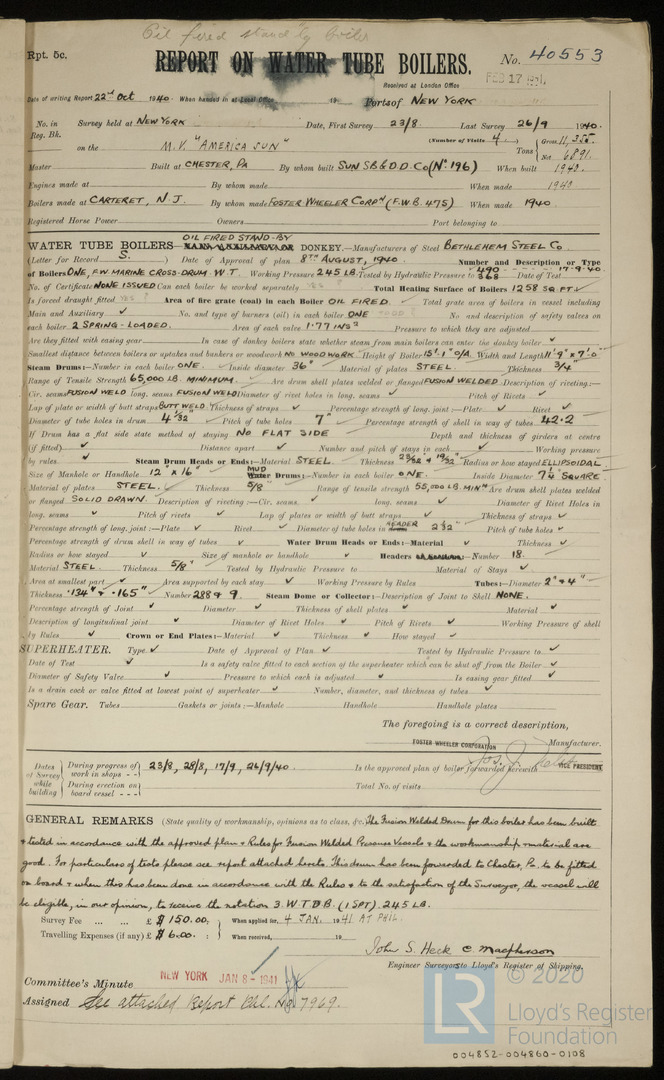 Oil fired stand by boiler
Rpt. 5c.
REPORT ON WATER TUBE BOILERS.
No. 40553
Received at London Office
FEB 17 1941
Date of writing Report 22nd Oct 1940. When handed in at Local Office 19 Ports of NEW YORK
No. in Survey held at NEW YORK Date, First Survey 23/8 Last Survey 26/9 1940.
Reg. Bk. (Number of Visits 4)
on the M.V. "AMERICA SUN" Tons Gross 11,355. Net 6891.
Master Built at CHESTER, PA By whom built SUN S.B. & D.D. Co (No. 196) When built 1940.
Engines made at By whom made When made 1940
Boilers made at CARTERET, N.J. By whom made FOSTER WHEELER CORPN (F.W.B. 475) When made 1940.
Registered Horse Power Owners Port belonging to
OIL FIRED STAND-BY
WATER TUBE BOILERS DONKEY.—Manufacturers of Steel BETHLEHEM STEEL Co.
(Letter for Record S.) Date of Approval of plan 8TH AUGUST, 1940. Number and Description or Type
of Boilers ONE, F.W. MARINE CROSS-DRUM W.T. Working Pressure 245 LB. Tested by Hydraulic Pressure to 490 368 Date of Test 17-9-40.
No. of Certificate NONE ISSUED Can each boiler be worked separately YES? Total Heating Surface of Boilers 1258 SQ FT
Is forced draught fitted YES? Area of fire grate (coal) in each Boiler OIL FIRED. Total grate area of boilers in vessel including
Main and Auxiliary ✓ No. and type of burners (oil) in each boiler ONE No. and description of safety valves on
each boiler 2 SPRING-LOADED. Area of each valve 1.77 INS² Pressure to which they are adjusted
Are they fitted with easing gear In case of donkey boilers state whether steam from main boilers can enter the donkey boiler ✓
Smallest distance between boilers or uptakes and bunkers or woodwork NO WOODWORK Height of Boiler 15'.1" O/A. Width and Length 11'-9" x 7'-0"
Steam Drums:—Number in each boiler ONE. Inside diameter 36" Material of plates STEEL. Thickness 3/4"
Range of Tensile Strength 65,000 LB. MINIMUM. Are drum shell plates welded or flanged FUSION WELDED Description of riveting:—
Cir. seams FUSION WELD long. seams FUSION WELD Diameter of rivet holes in long. seams ✓ Pitch of Rivets ✓
Lap of plate or width of butt straps BUTT WELD. Thickness of straps ✓ Percentage strength of long. joint:—Plate ✓ Rivet ✓
Diameter of tube holes in drum 4 1/32" Pitch of tube holes 7" Percentage strength of shell in way of tubes 42.2
If Drum has a flat side state method of staying NO FLAT SIDE Depth and thickness of girders at centre
(if fitted) ✓ Distance apart ✓ Number and pitch of stays in each ✓ Working pressure
by rules ✓ Steam Drum Heads or Ends:—Material STEEL. Thickness 23/32" & 19/32" Radius or how stayed ELLIPSOIDAL
Size of Manhole or Handhole 12" x 16" MUD Water Drums:—Number in each boiler ONE. Inside Diameter 7 1/4" SQUARE
Material of plates STEEL. Thickness 5/8" Range of tensile strength 55,000 LB. MINM Are drum shell plates welded
or flanged SOLID DRAWN. Description of riveting:—Cir. seams ✓ long. seams ✓ Diameter of Rivet Holes in
long. seams ✓ Pitch of rivets ✓ Lap of plates or width of butt straps ✓ Thickness of straps ✓
Percentage strength of long. joint:—Plate ✓ Rivet ✓ Diameter of tube holes in HEADER 2 1/32" Pitch of tube holes ✓
Percentage strength of drum shell in way of tubes ✓ Water Drum Heads or Ends:—Material ✓ Thickness ✓
Radius or how stayed ✓ Size of manhole or handhole ✓ Headers Number 18.
Material STEEL. Thickness 5/8" Tested by Hydraulic Pressure to Material of Stays ✓
Area at smallest part ✓ Area supported by each stay ✓ Working Pressure by Rules ✓ Tubes:—Diameter 2" & 4"
Thickness .134" & .165" Number 288 & 9 Steam Dome or Collector:—Description of Joint to Shell NONE.
Percentage strength of Joint ✓ Diameter ✓ Thickness of shell plates ✓ Material ✓
Description of longitudinal joint ✓ Diameter of Rivet Holes ✓ Pitch of Rivets ✓ Working Pressure of shell
by Rules ✓ Crown or End Plates:—Material ✓ Thickness ✓ How stayed ✓
SUPERHEATER. Type ✓ Date of Approval of Plan ✓ Tested by Hydraulic Pressure to ✓
Date of Test ✓ Is a safety valve fitted to each section of the superheater which can be shut off from the Boiler ✓
Diameter of Safety Valve ✓ Pressure to which each is adjusted ✓ Is easing gear fitted ✓
Is a drain cock or valve fitted at lowest point of superheater ✓ Number, diameter, and thickness of tubes ✓
Spare Gear. Tubes Gaskets or joints:—Manhole Handhole Handhole plates
The foregoing is a correct description,
FOSTER WHEELER CORPORATION Manufacturer.
VICE PRESIDENT
Dates of Survey while building During progress of work in shops - - 23/8, 28/8, 17/9, 26/9/40. Is the approved plan of boiler forwarded herewith
During erection on board vessel - - - Total No. of visits
GENERAL REMARKS (State quality of workmanship, opinions as to class, &c. The Fusion Welded Drum for this boiler has been built
& tested in accordance with the approved plan & Rules for Fusion Welded Pressure Vessels & the workmanship & material are
good. For particulars of tests please see report attached hereto. This drum has been forwarded to Chester, Pa. to be fitted
on board & when this has been done in accordance with the Rules & to the satisfaction of the Surveyor, the vessel will
be eligible, in our opinion, to receive the notation 3. W.T.D.B. (1 SPT). 245 LB.
Survey Fee ... ... £ $150.00. When applied for, 4 JAN. 1941 AT PHIL.
Travelling Expenses (if any) £ $6.00. When received, 19
John S. Heck C Macpherson
Engineer Surveyors to Lloyd's Register of Shipping.
Committee's Minute NEW YORK JAN 8 - 1941
Assigned See attached Report Phl. No. 7969.
© 2020
LR
Lloyd's Register
Foundation
004852-004860-0108